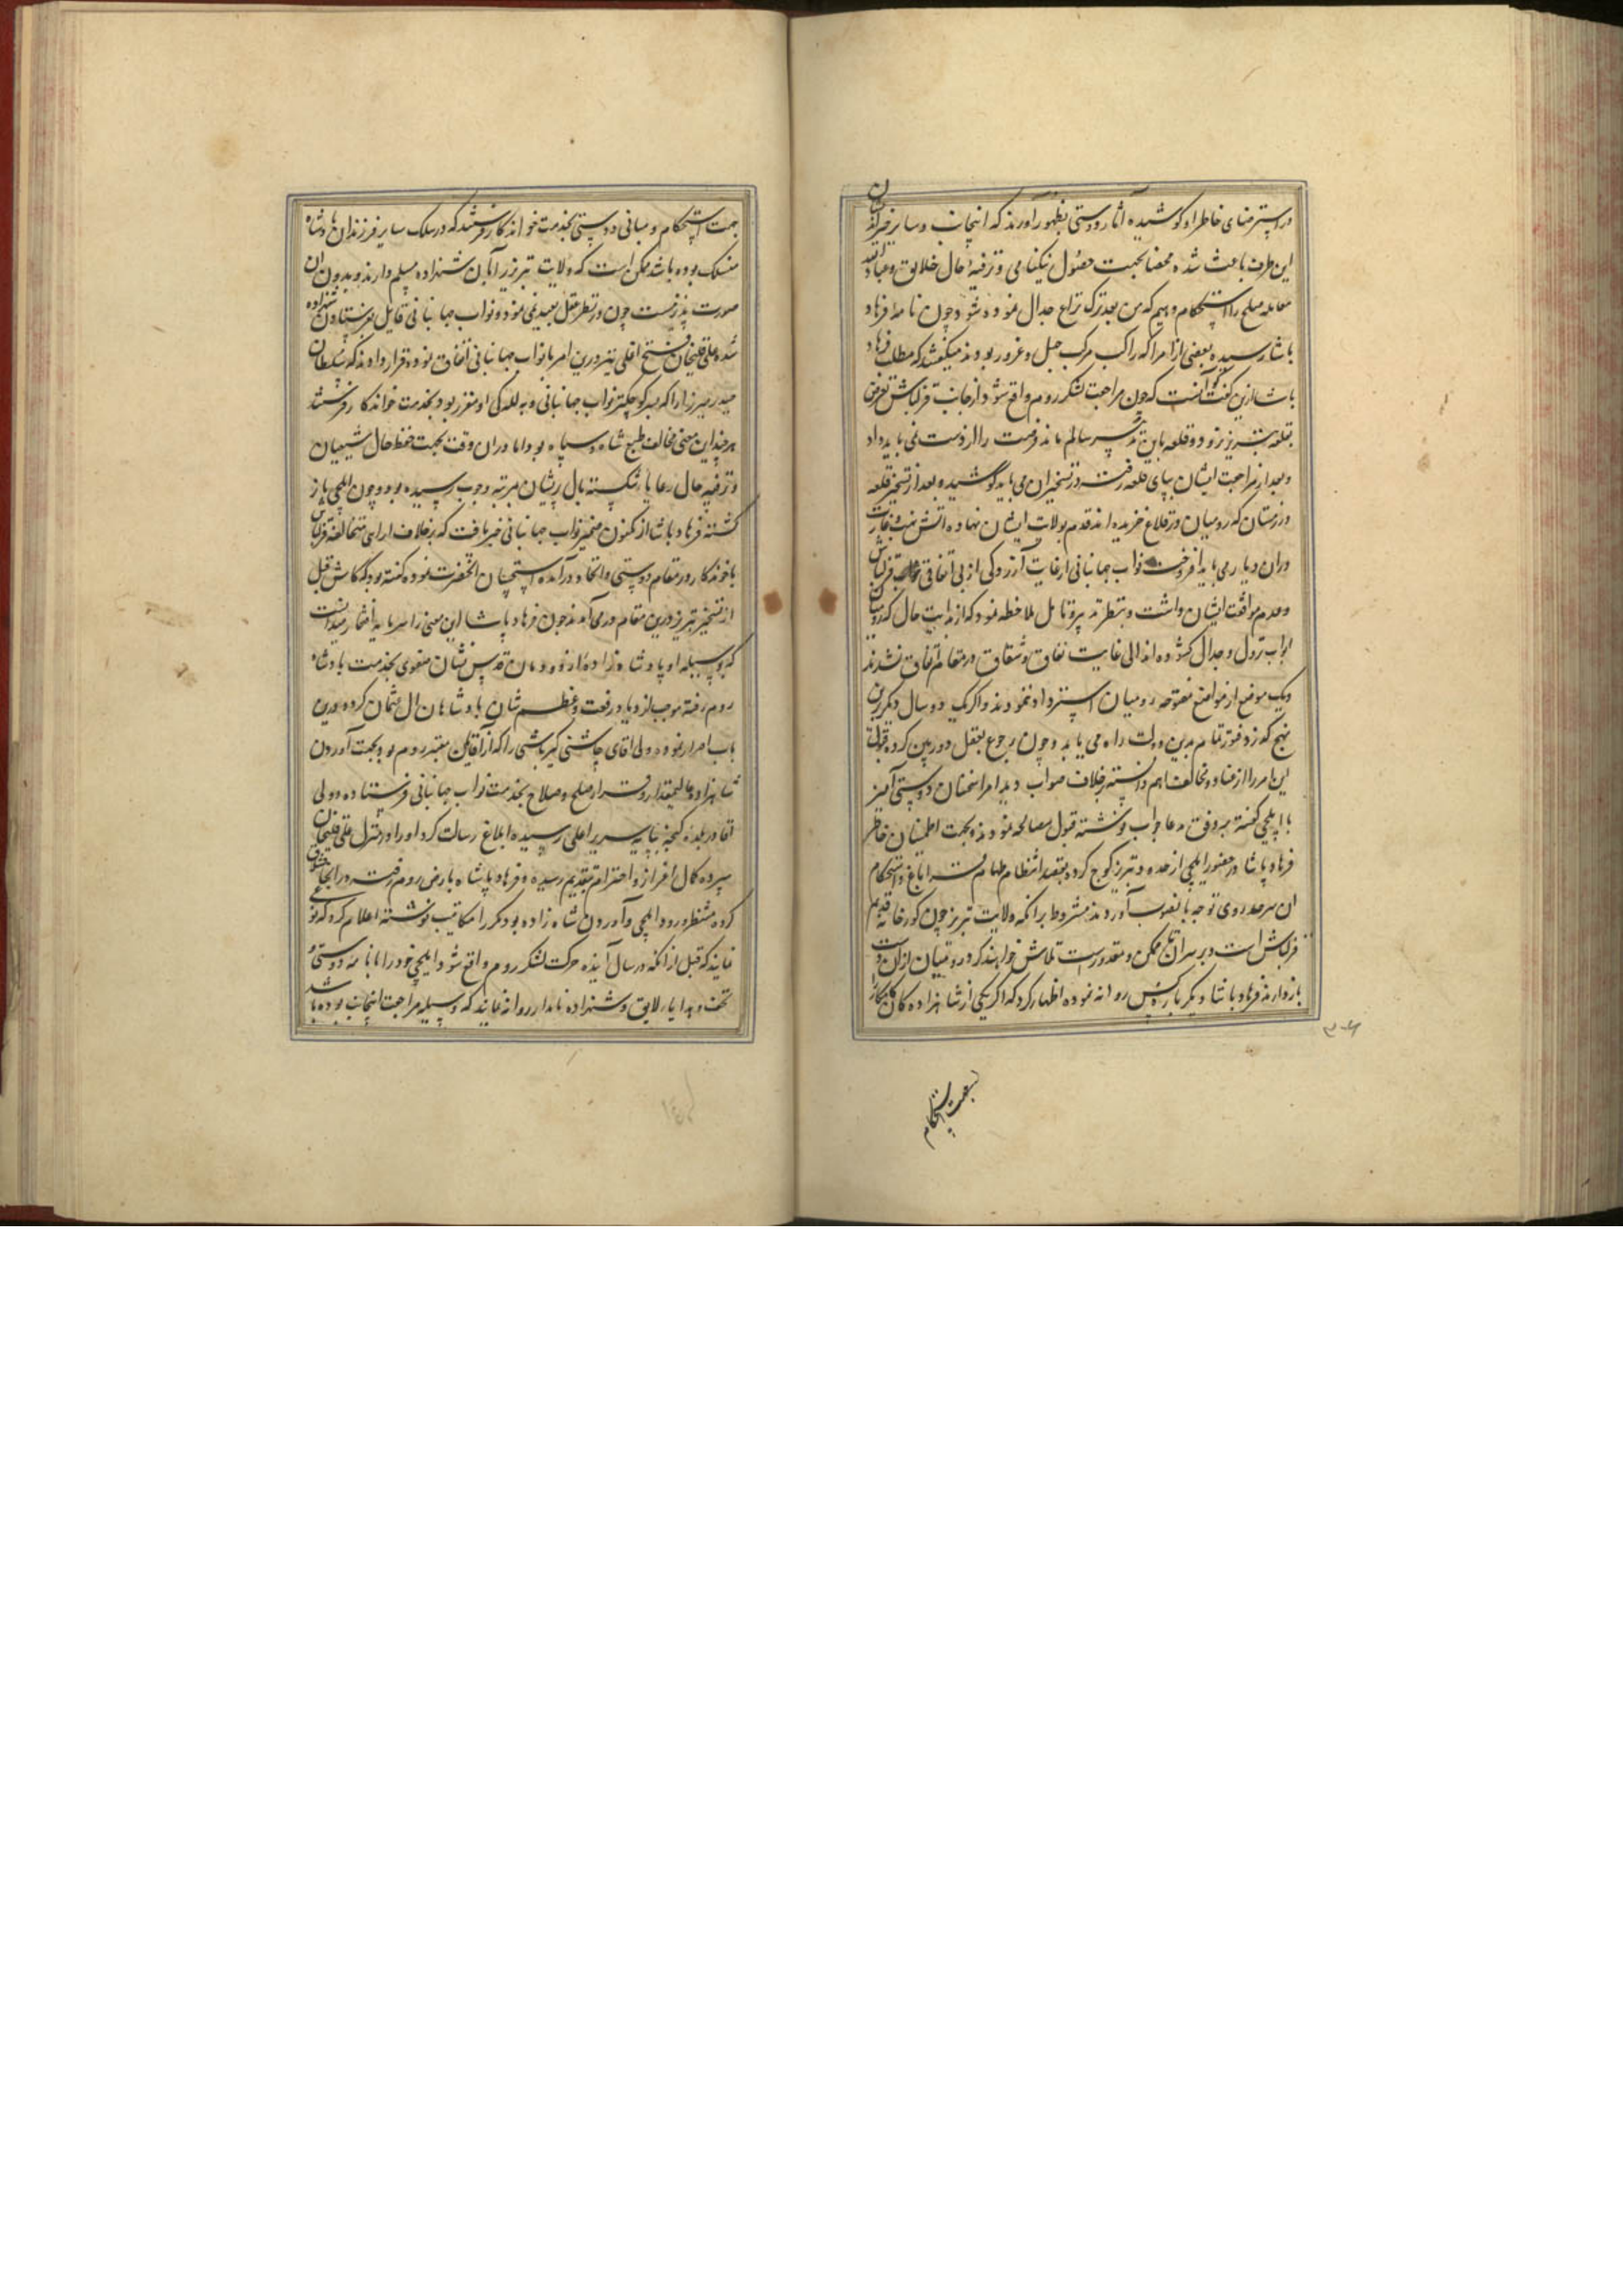 در استرضای خاطر او کوشیده آثار دوستی بظهور آورند که اینجانب و سایر خیراندیشان
این طرف باعث شده محضا بجهت حصول نیکنامی و ترفیه حال خلایق و عباد الله
معامله صلح را استحکام دهیم که من بعد ترک نزاع جدال نموده شود و چون نامه فرهاد
پاشا رسیده بعضی از امرا که راکب مرکب جهل و غرور بودند میگفتند که مطلب فرهاد
پاشا ازین گفت آنست که چون مراجعت لشکر روم واقع شود از جانب قزلباش تعرض
بقلعه تبریز نرود و قلعه باین تدبیر سالم ماند فرصت را از دست نمی باید داد
و بعد از مراجعت ایشان بپای قلعه رفته در تسخیر آن می باید کوشید و بعد از تسخیر قلعه
در زمستان که رومیان در قلاع خزیده اند قدم بولایت ایشان نهاده آتش نهب و غارت
در آن دیار می باید افروخت نواب جهانبانی از غایت آزردگی از بی اتفاقی قزلباش
و عدم موافقت ایشان داشت و بنظر تدبیر و تامل ملاحظه نمود که از بدایت حال که رومیان
ابواب نزول و جدال کشوده اند الی غایت نفاق و شقاق در مقام اتفاق نشدند
و یک موضع از مواضع مفتوحه رومیان استرداد ننمودند و اگر یک دو سال دیگر برین
نهج گذرد فتور تمام بدین دولت راه می یابد و چون رجوع بعقل دوربین کرده
این امر را از عناد و مخالفت اهم دانسته خلاف صواب دید امرا سخنان دوستی آمیز
با ایلچی گفته بر وفق مدعا جواب نوشته قبول مصالحه نمودند و بجهت اطمینان خاطر
فرهاد پاشا در حضور ایلچی از حدود تبریز کوچ کرده بقصد انتظام مهام قراباغ و استحکام
آن سرحد روی توجه بانصوب آوردند مشروط بر آنکه ولایت تبریز چون کورخانه قدیم
قزلباش است و بر سر آن ممکن و مقدورست تلاش خواهند کرد رومیان از آن دست
باز دارند فرهاد پاشا دیگر باره کس روانه نموده اظهار کرد که اگر یکی از شاهزاده های کامکار را
بجهت استحکام
جهت استحکام و مبانی دوستی بخدمت خواندکار فرستند که در سلک سایر فرزندان پادشاه
منسلک بوده باشد ممکن است که ولایت تبریز را بآن شهزاده مسلم دارند و بدون آن
صورت پذیر نیست چون در نظر عقل بعید نمی نمود و نواب جهانبانی قایل بفرستادن شهزاده
شده علیقلیخان فتح اقلی نیز درین امر با نواب جهانبانی اتفاق نموده قرار دادند که سلطان
حیدر میرزا را که پسر کوچکتر نواب جهانبانی و به للکی او مقرر بود بخدمت خواندکار فرستند
هر چند این معنی مخالف طبع شاه و سپاه بود اما در آن وقت بجهت حفظ حال شیعیان
و ترفیه حال رعایا شکسته بال پریشان بمرتبه وجوب رسیده بود و چون ایلچی باز
گشته فرهاد پاشا از مکنون ضمیر نواب جهانبانی خبر یافت که بر خلاف ارای مخالفه قزلباش
با خوندکار در مقام دوستی و اتحاد درآمده استحسان آنحضرت نموده گفته بود که کاش قبل
از تسخیر تبریز درین مقام درمی آمدند چون فرهاد پاشا این معنی را سرمایه افتخار میدانست
که بوسیله او پادشاه زاده از دودمان قدس نشان صفوی بخدمت پادشاه
روم رفته موجب ازدیاد رفعت و عظم شان پادشاهان آل عثمان گردد درین
باب اصرار نموده ولی آقای چاشنی گیر باشی را که از آقایان معتبر روم بود بجهت آوردن
شاهزاده عالیمقدار و قرار صلح و صلاح بخدمت نواب جهانبانی فرستاده و ولی
آقا در بلده گنجه بپایه سریر اعلی رسیده ابلاغ رسالت کرد او را در منزل علیقلیخان
سپرده کمال اعزاز و احترام بتقدیم رسیده و فرهاد پاشا بارض روم رفته در آنجا
کرده منتظر ورود ایلچی و آوردن شاه زاده بود مکرر مکاتیب نوشته اعلام کرد که
نمایند که قبل از آنکه در سال آینده حرکت لشکر روم واقع شود ایلچی خود را با نامه دوستی
تحف و هدایا لایق و شهزاده نامدار روانه نمایند که وسیله مراجعت اینجانب بوده باشد